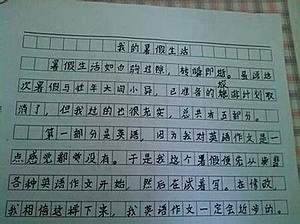 我的暑假生活
暑假生活如白驹过隙，转瞬即逝。虽说这
次暑假与往年大同小异，已准备的旅游计划取
消了，但我过的也很充实，总共有五部分。
第一部分是英语，因为我对英语作文是一
点感觉都没有。于是我这个暑假便先从
各种英语作文开始，然后在试着写。在修改
我相信这样下来，我英语作文一定会进步的。